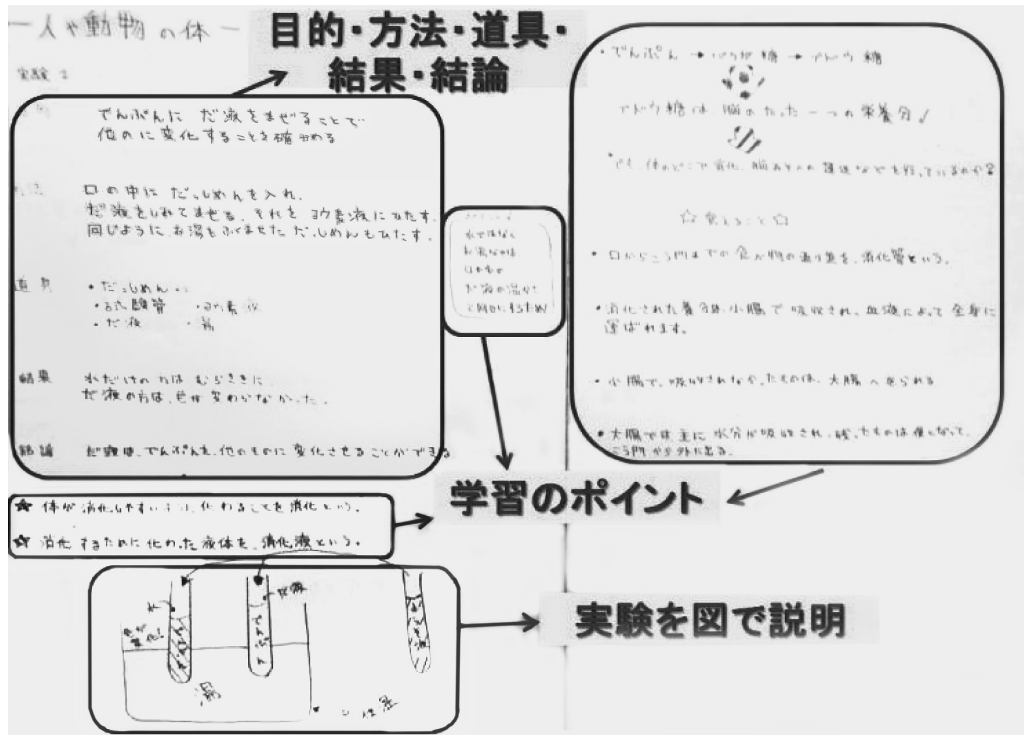 一人や動物の体一
目的・方法・道具・
結果・結論
実験
でんぷんに だ液をまぜることで
他のに変化することを確かめる
口の中に だっしめんを入れ、
だ液をいれてまぜる。それを ヨウ素液にひたす。
同じように お湯をふくませた だっしめんもひたす。
道具 ・だっしめん
・試験管 ・ヨウ素液
・だ液 ・湯
結果 水だけの方は むらさきに
だ液の方は、色は変わらなかった。
結論 だ液は、でんぷんを、他のものに変化させることができる
☆ 体が 消化しやすい 化わることを消化という。
☆ 消化するために化わった液体を、消化液という。
水
湯
水ではなく
お湯なのは
だ液の温度
・でんぷん → 糖 → ブドウ糖
ブドウ糖は 脳の たった一つの栄養分!
☆覚えること☆
・口からこう門までの食べ物の通り道を、消化管という。
・消化された養分は、小腸で吸収され、血液によって全身に
運ばれます。
・小腸で、吸収されなかったものは、大腸へ送られる
・大腸では主に水分が吸収され、残ったものは便となって、
こう門から外に出る。
学習のポイント
実験を図で説明